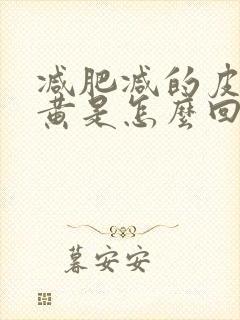 减肥减的皮
黄是怎麼回
暮安安